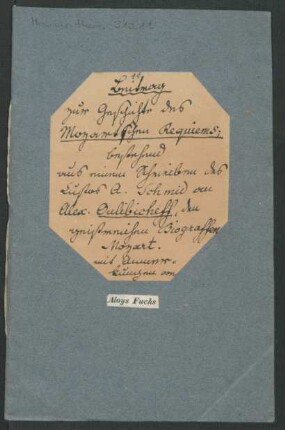 Beitrag
zur Geschichte des
Mozart'schen Requiems;
bestehend
aus einem Schreiben des
Custos A. Schmid an
Alex. Oulibicheff, den
geistreichen Biografen
Mozart.
mit Anmer-
kungen von
Aloys Fuchs